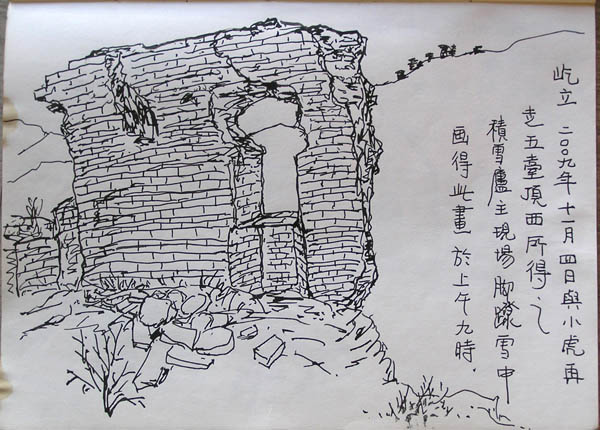 屹立 二〇〇九年十一月四日與小虎再
走五臺頂西所得之
積雪廬主現場脚雪中
画得此畫 於上午九時.